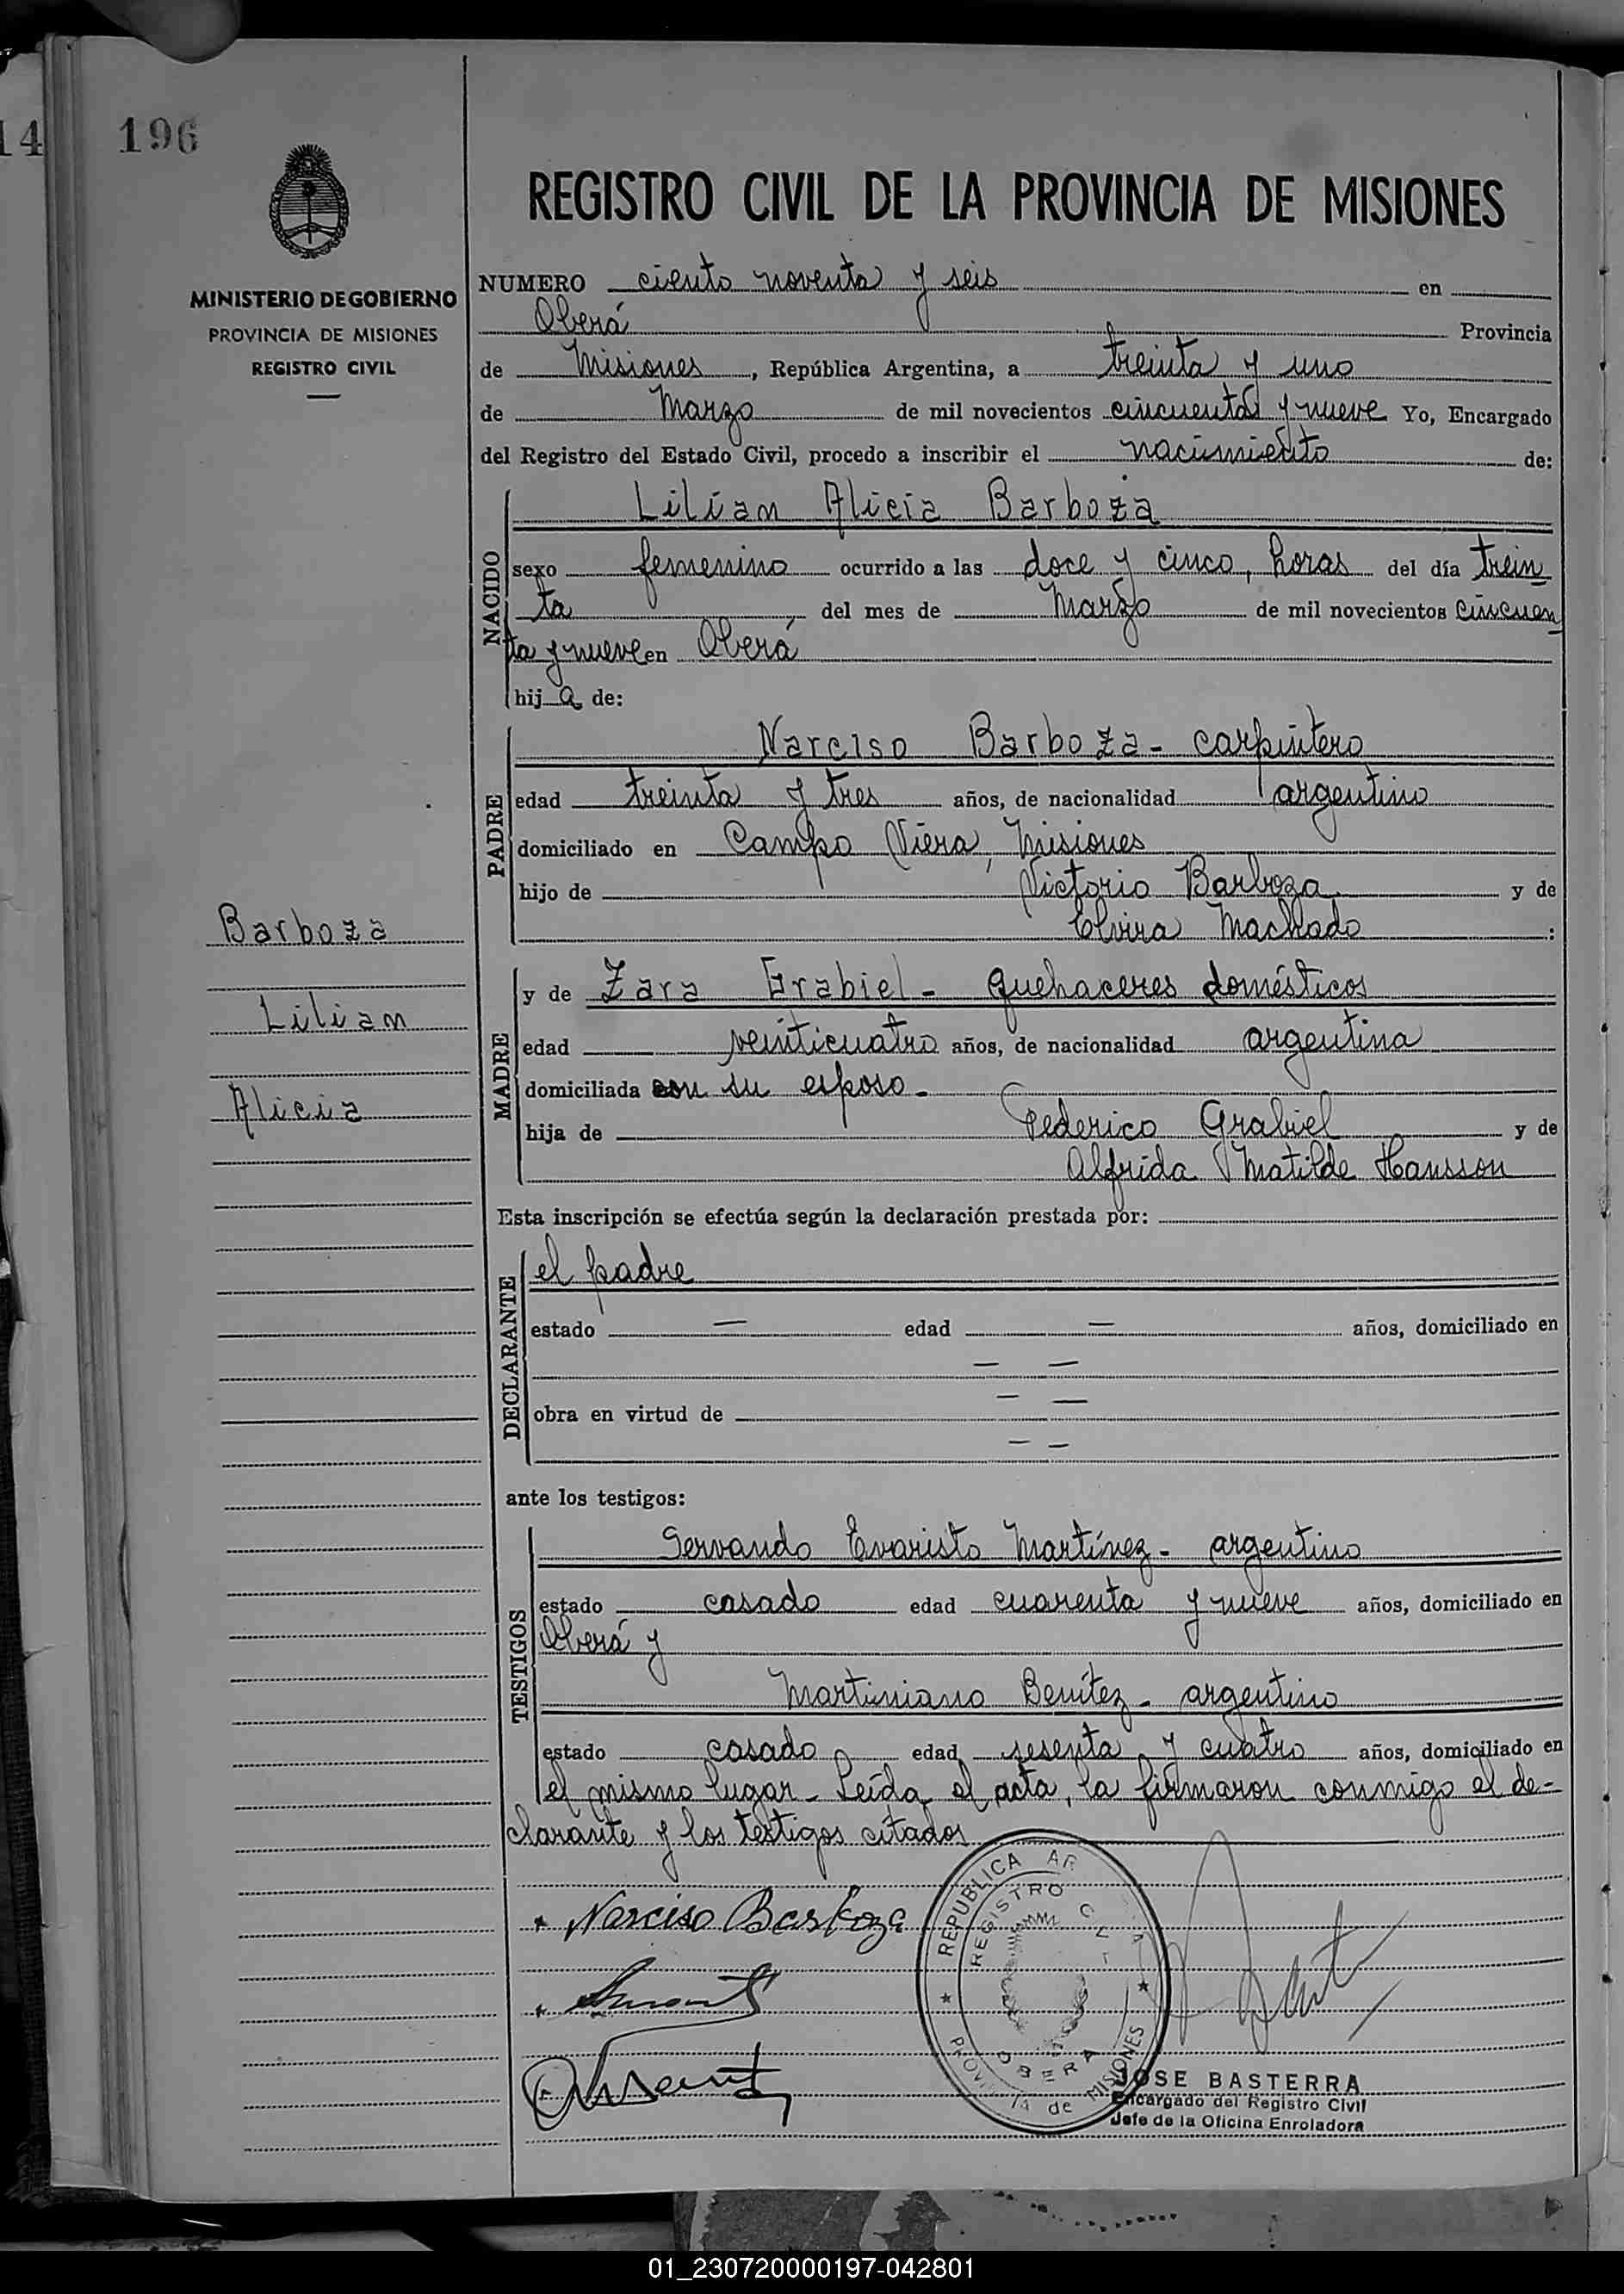 14
196
REGISTRO CIVIL DE LA PROVINCIA DE MISIONES
MINISTERIO DE GOBIERNO
PROVINCIA DE MISIONES
REGISTRO CIVIL
NUMERO ciento noventa y seis en
Oberá Provincia
de Misiones, República Argentina, a treinta y uno
de Marzo de mil novecientos cincuenta y nueve Yo, Encargado
del Registro del Estado Civil, procedo a inscribir el nacimiento de:
NACIDO
Lilian Alicia Barboza
sexo femenino ocurrido a las doce y cinco, horas del día trein
ta del mes de Marzo de mil novecientos cincuen
ta y nueve en Oberá
hij a de:
PADRE
Narciso Barboza - carpintero
edad treinta y tres años, de nacionalidad argentino
domiciliado en Campo Viera, Misiones
hijo de Victorio Barboza y de
Elvira Machado :
Barboza
Lilian
Alicia
MADRE
y de Zara Grabiel - quehaceres domésticos
edad veinticuatro años, de nacionalidad argentina
domiciliada con su esposo -
hija de Federico Grabiel y de
Alfrida Matilde Hansson
Esta inscripción se efectúa según la declaración prestada por:
DECLARANTE
el padre
estado — edad — años, domiciliado en
— —
obra en virtud de — —
— —
ante los testigos:
TESTIGOS
Servando Evaristo Martínez - argentino
estado casado edad cuarenta y nueve años, domiciliado en
Oberá y
Martiniano Benítez - argentino
estado casado edad sesenta y cuatro años, domiciliado en
el mismo lugar - Leída el acta, la firmaron conmigo el de-
clarante y los testigos citados
Narciso Barboza
REPUBLICA AR
REGISTRO CI
OBERA
PROVIN IA de MISIONES
JOSE BASTERRA
Encargado del Registro Civil
Jefe de la Oficina Enroladora
01_230720000197-042801